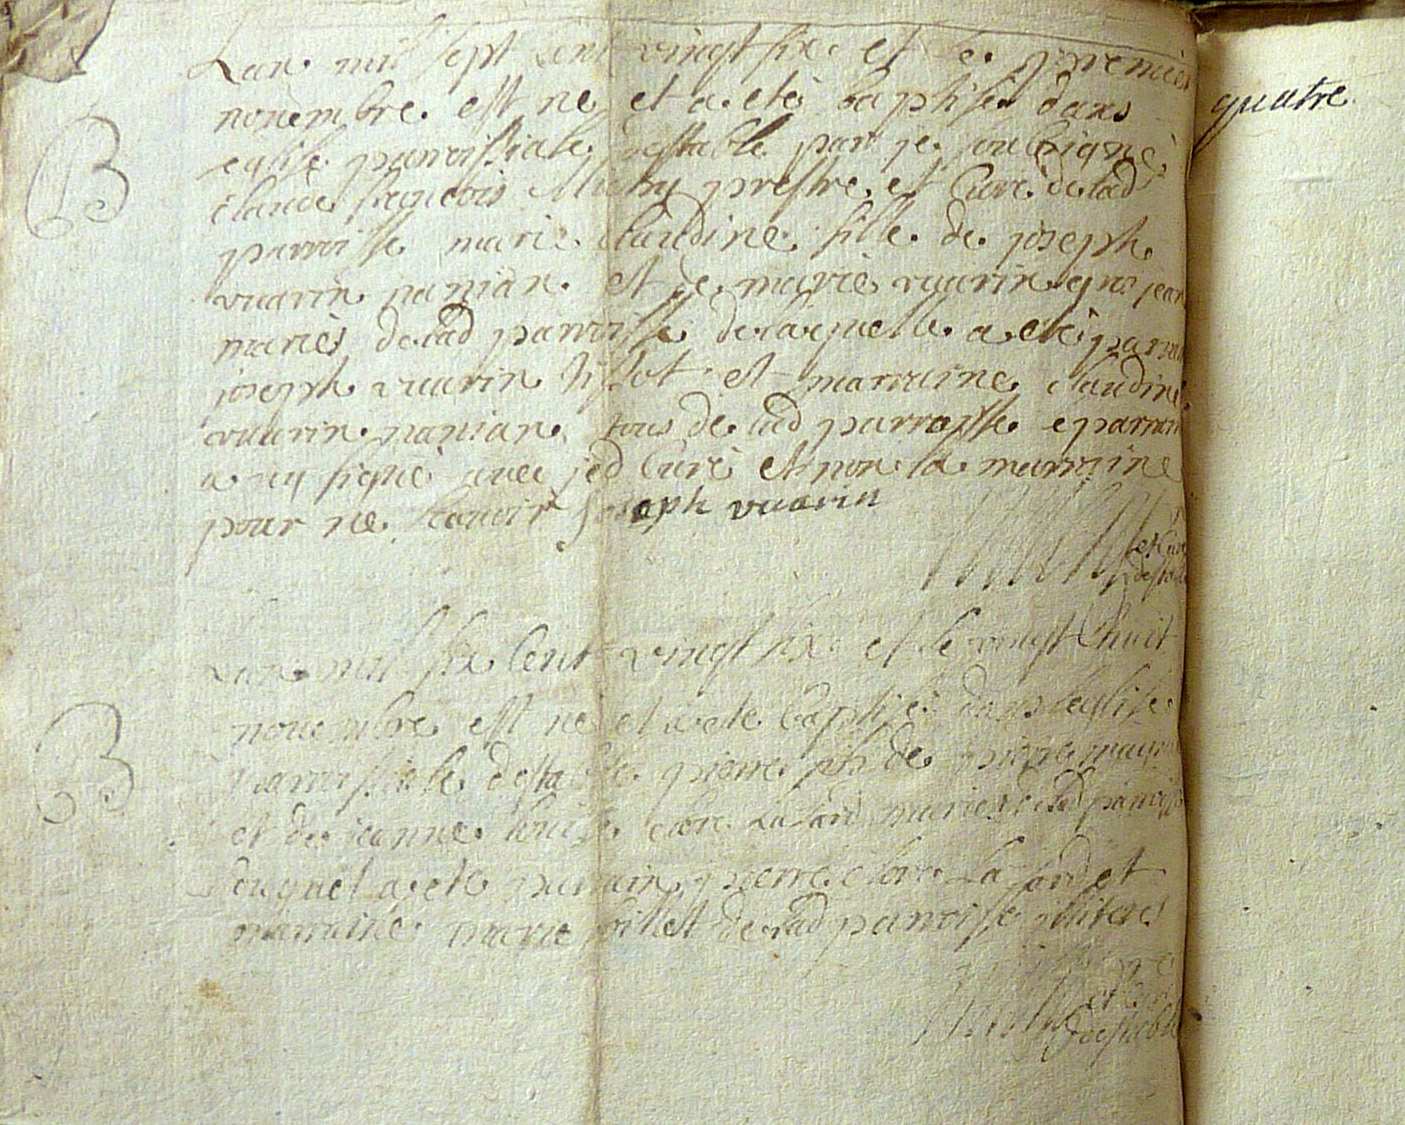 Lan mil sept cent vingt six et le premier
novembre est ne et a eté baptisé dans
eglise parroissiale destable par je soubsigné
claude françois prestre et Curé de lad
B
parroisse marie claudine fille de joseph
vuarin panian et de marie vuarin gros jean
mariés de lad parroisse de laquelle a eté parrain
joseph vuarin tissot et marraine claudine
vuarin panian tous de lad parroisse e parrain
a icy signé avec led Curé et non la marraine
pour ne scavoir Joseph vuarin
et Curé
destable
Lan mil six Cent vingt six et le vingt huit
novembre est né et a eté baptisé dans leglise
B
parroissiale destable pierre fils de pierre
et de jeanne mariés de lad parroisse
duquel a eté parrain pierre et
marraine marie de lad parroisse illiterés
et
destable
quatre